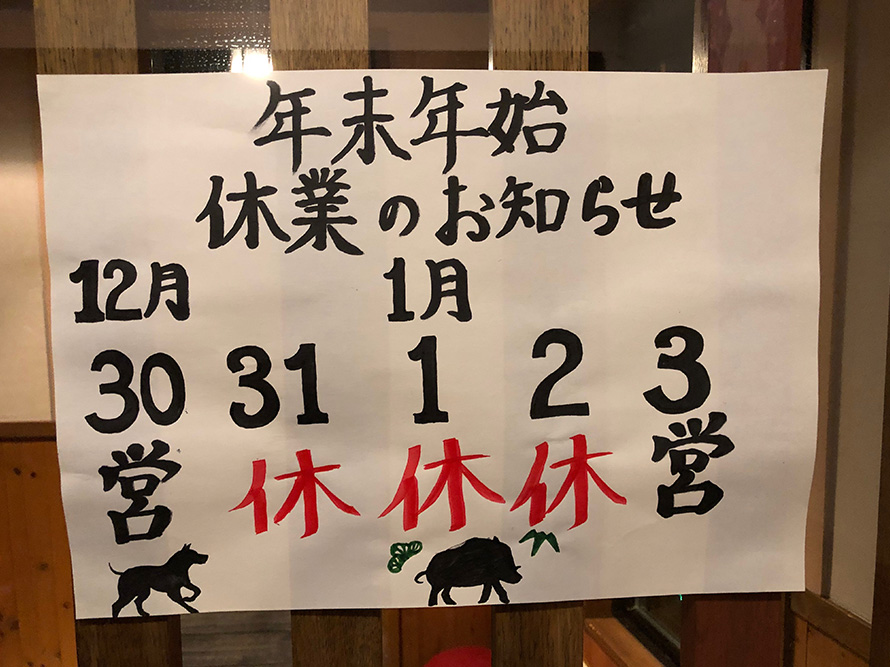 年末年始
休業のお知らせ
12月 1月
30 31 1 2 3
営 休 休 休 営